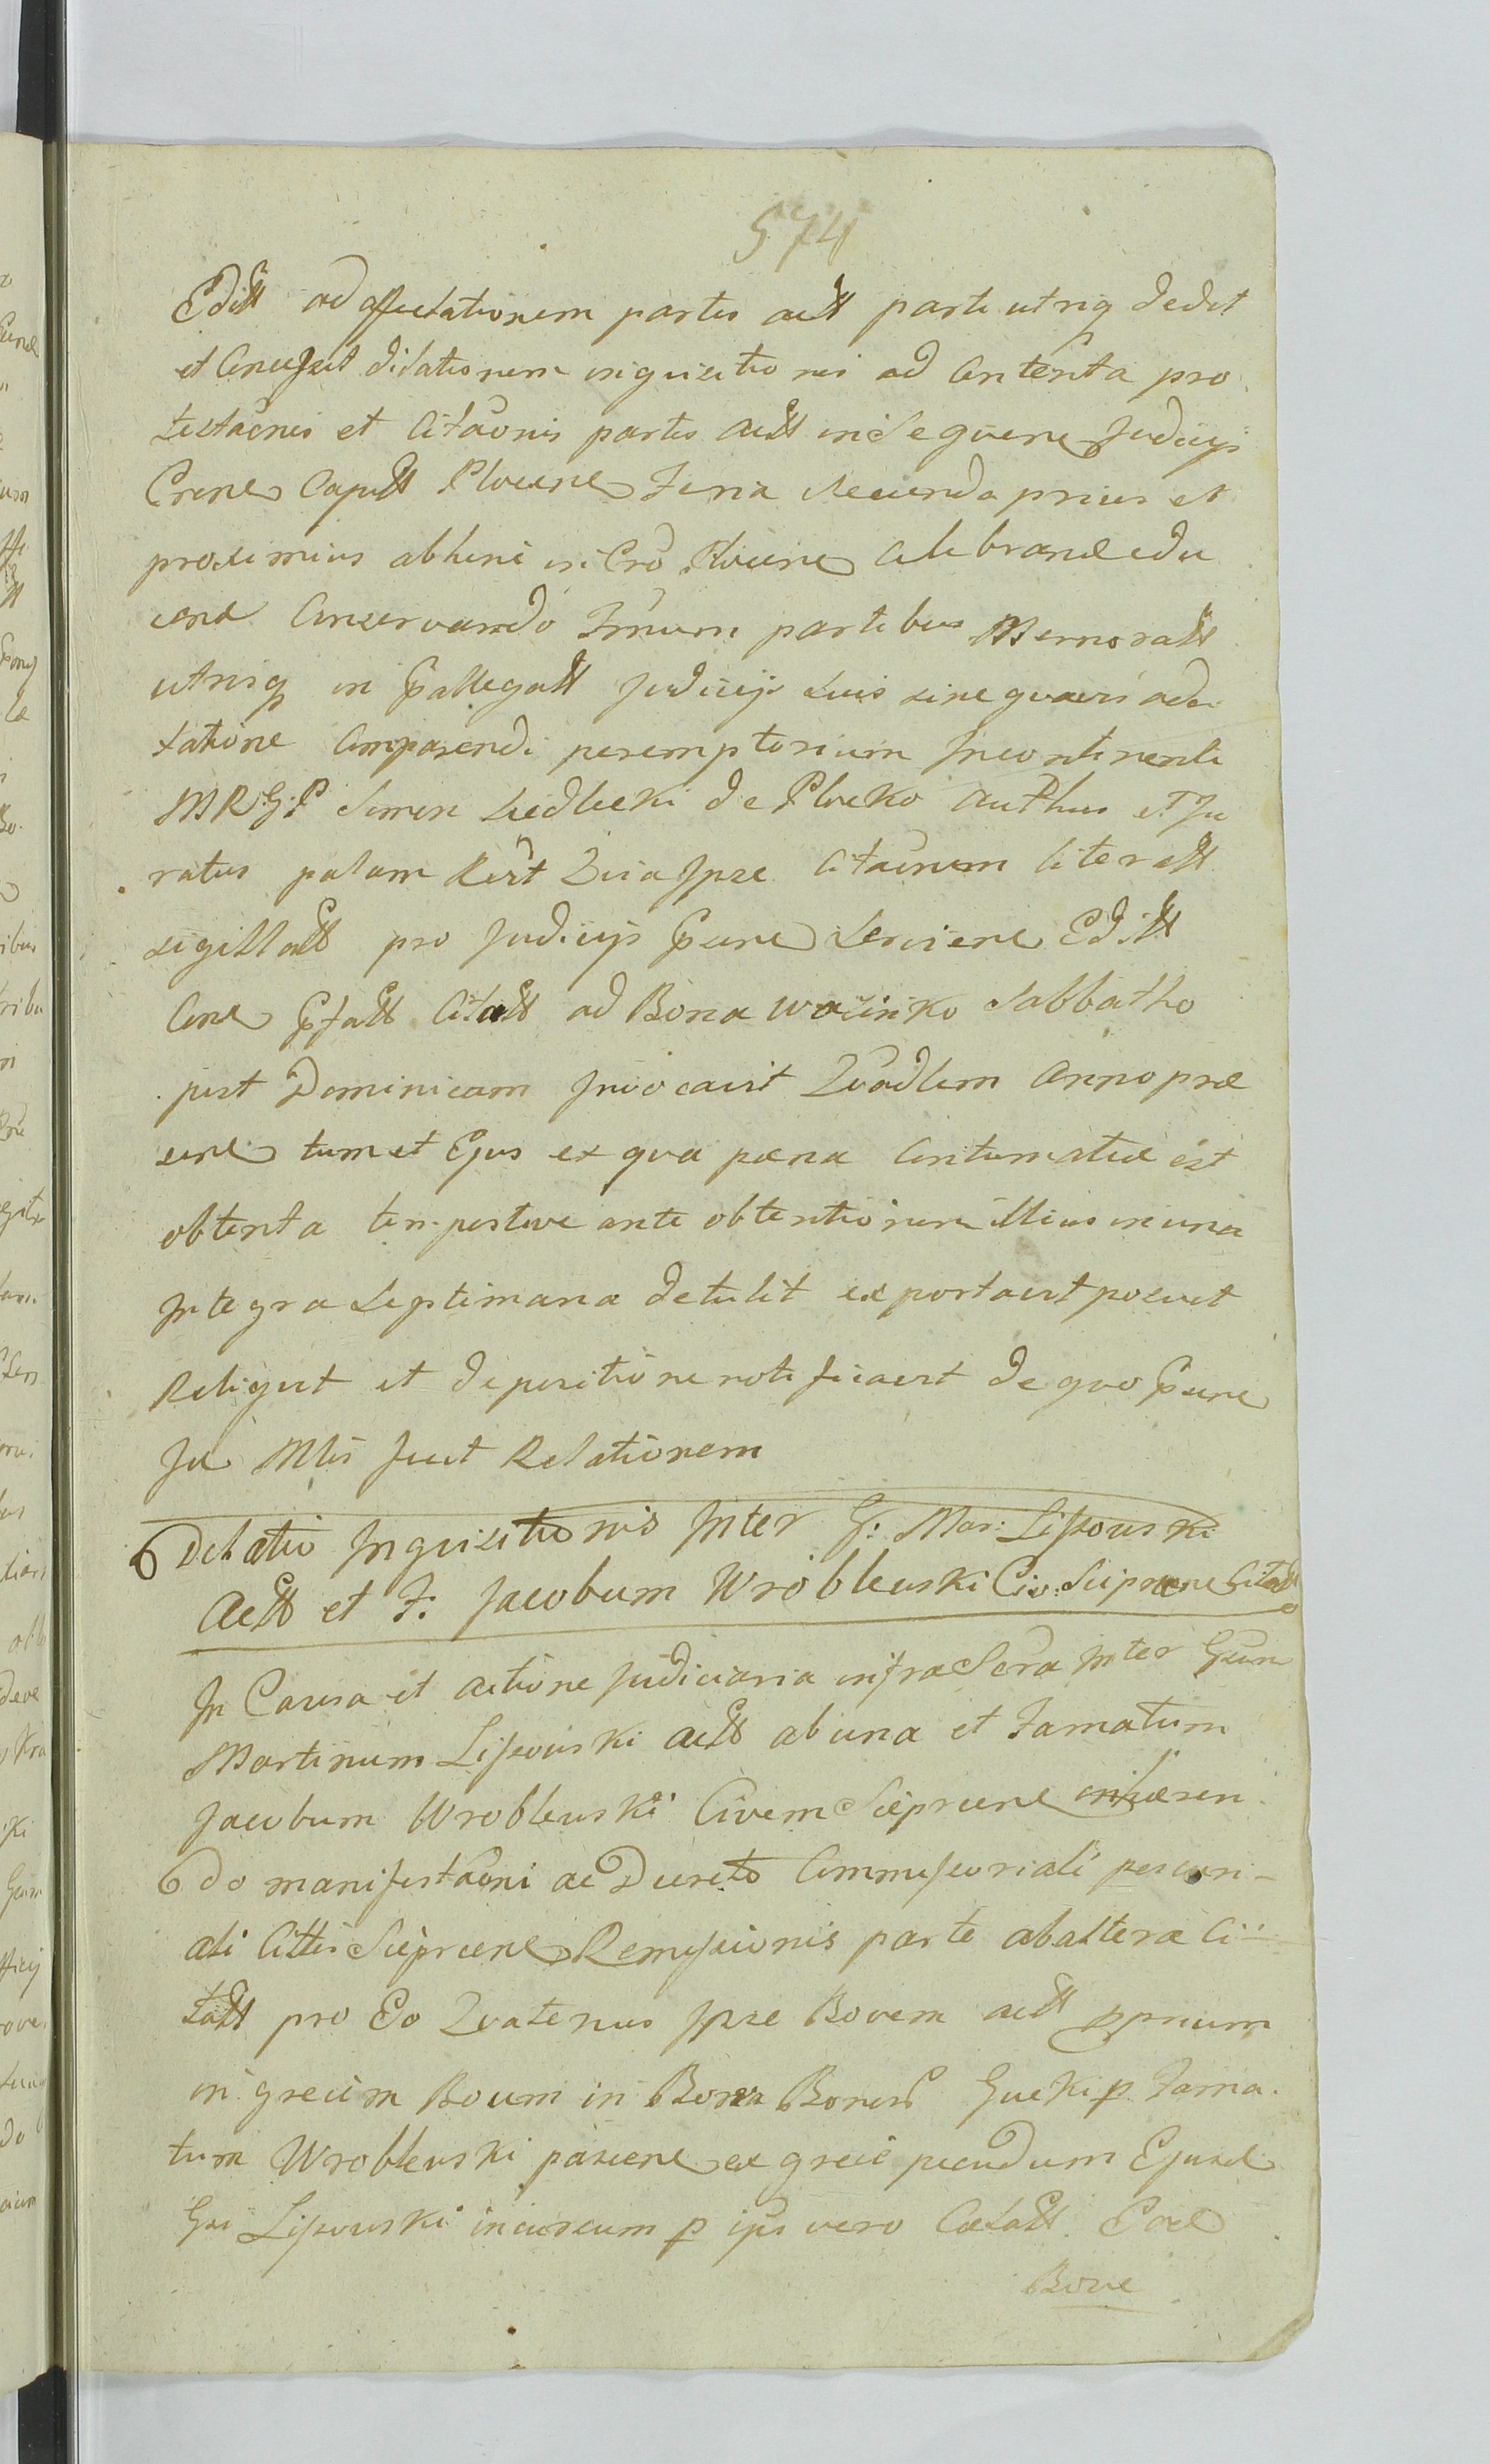 574
Editt ad affectationem partis actt parti utriq dedit
et Concessit dilationem inquisitionis ad Contenta pro
testaonis et Citaonis partis Actt in Sequen Judicijs
Cren Capitt Plocen Feria secunda prius et
proximius abhinc in Cro Plocen Celebrand edu
cend Conservando Tmum partibus Memoratt
utrisq in Pallegatt Judicijs suis sine quavis adci
tatione Comparendi peremptorium Incontinenti
MRGP Simon Siedlecki de Plocko Authus et Ju
ratus palam Rect Quia Ipse Citaonem literatt
sigillatt pro Judicijs Psen Servien Editt
Con Pfatt Citatt ad Bona Wozinko Sabbatho
post Dominicam Invocavit Quadlem Anno præ
sen tum et Ejus ex qua pæna Contumatiæ est
obtenta tempestive ante obtentionem illius in una
Integra Septimana detulit exportavit posuit
Reliquit et depositione notificavit de quo Psen
Ju Mtis fecit Relationem
Delatio Inquisitionis Inter G: Mar: Lissowski
Actt et F: Jacobum Wroblewski Civ: Sieprcen Citatt
In Causa et actione Judiciaria infra Scra Inter Gsum
Martinum Lissowski actt ab una et Famatum
Jacobum Wroblewski Civem Sieprcen inhæren
do manifestaoni ac Decreto Commissoriali
ali Cittis Sieprcen Remissionis parte ab altera Ci
tatt pro Eo Quatenus Ipse Bovem actt pprium
in grecim Boum in Bona Bonis Gucki p Fama
tum Wroblewski pascen ex grece pecudum Ejusd
Gsi Lissowski incursum p ips vero Citatt Eod
Bove